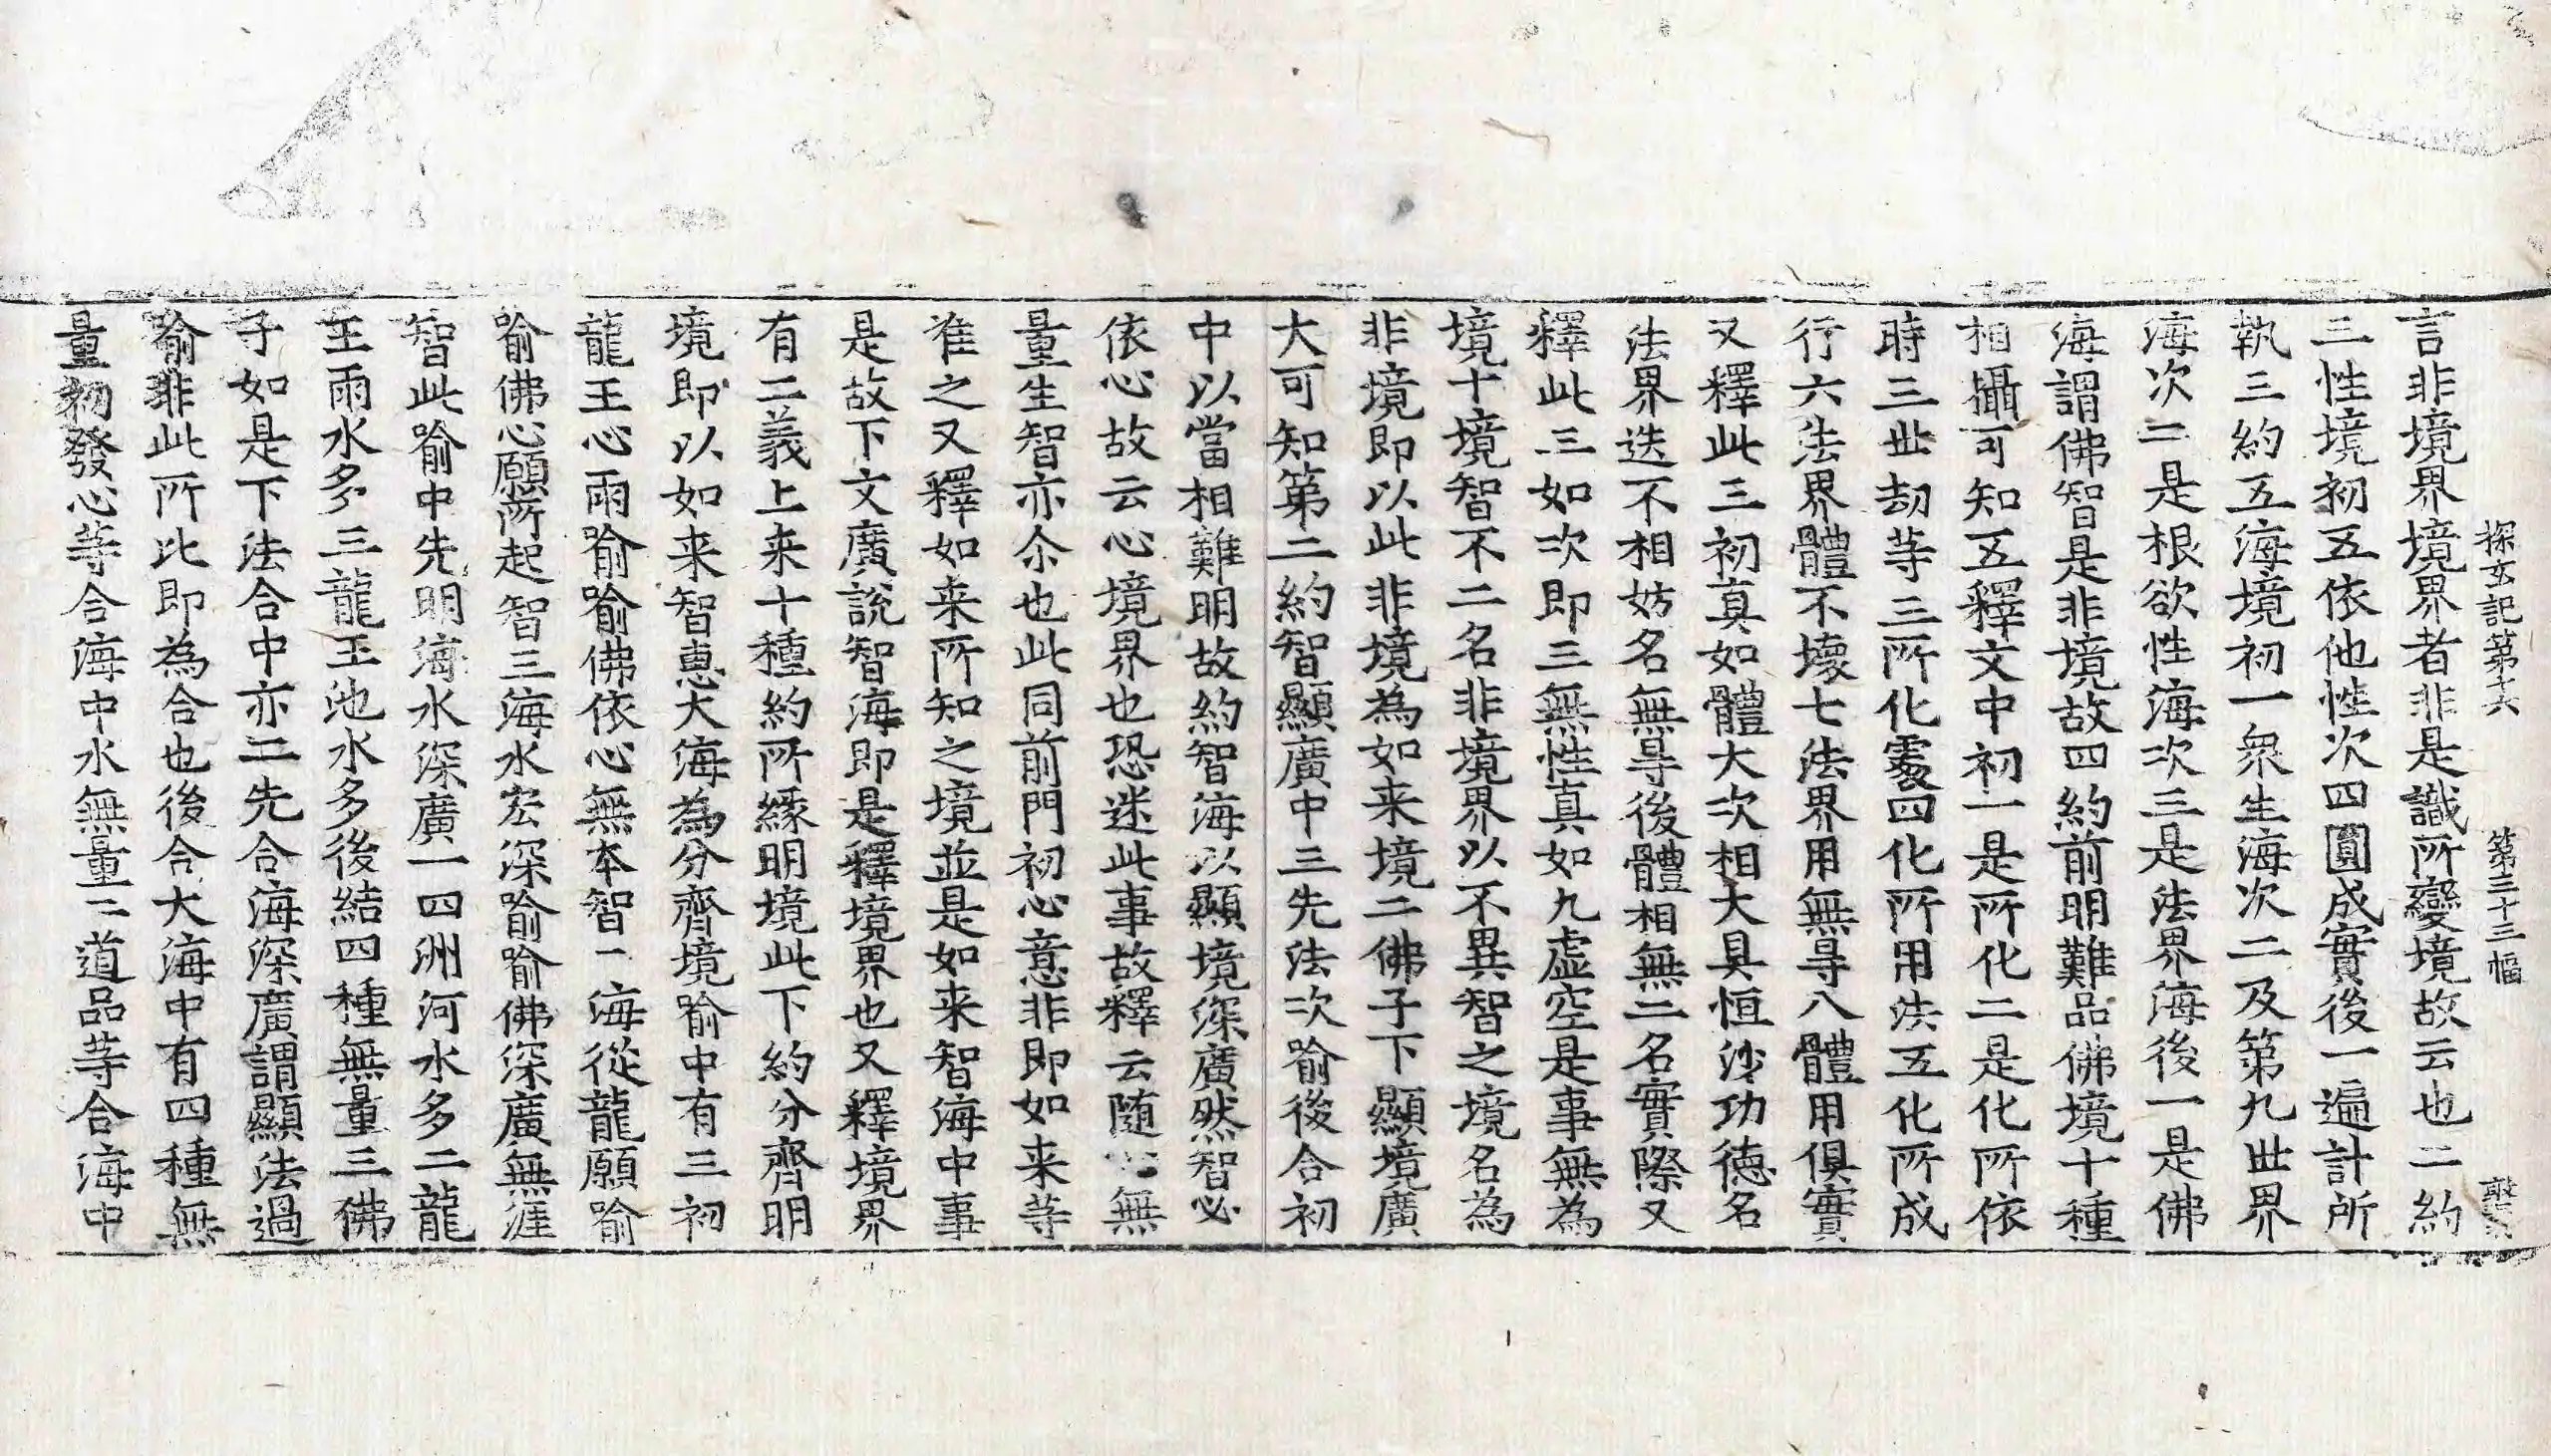 探玄記第十六　第三十三幅
言非境界境界者非是識所變境故云也二約
三性境初五依他性次四圓成實後一遍計所
執三約五海境初一衆生海次二及第九世界
海次二是根欲性海次三是法界海後一是佛
海謂佛智是非境故四約前明難品佛境十種
相攝可知五釋文中初一是所化二是化所依
時三世劫等三所化處四化所用法五化所成
行六法界體不壞七法界用無㝵八體用俱實
又釋此三初真如體大次相大具恒沙功德名
法界迭不相妨名無㝵後體相無二名實際又
釋此三如次即三無性真如九虛空是事無為
境十境智不二名非境界以不異智之境名為
非境即以此非境為如来境二佛子下顯境廣
大可知第二約智顯廣中三先法次喻後合初
中以當相難明故約智海以顯境深廣然智必
依心故云心境界也恐迷此事故釋云随無
量生智亦尒也此同前門初心意非即如来等
准之又釋如来所知之境並是如来智海中事
是故下文廣說智海即是釋境界也又釋境界
有二義上来十種約所緣明境此下約分齊明
境即以如来智惠大海為分齊境喻中有三初
龍王心雨喻喻佛依心無本智二海從龍願喻
喻佛心願所起智三海水宏深喻喻佛深廣無涯
智此喻中先明海水深廣一四洲河水多二龍
王雨水多三龍王池水多後結四種無量三佛
子如是下法合中亦二先合海深廣謂顯法過
喻非此所比即為合也後合大海中有四種無
量初發心等合海中水無量二道品等合海中